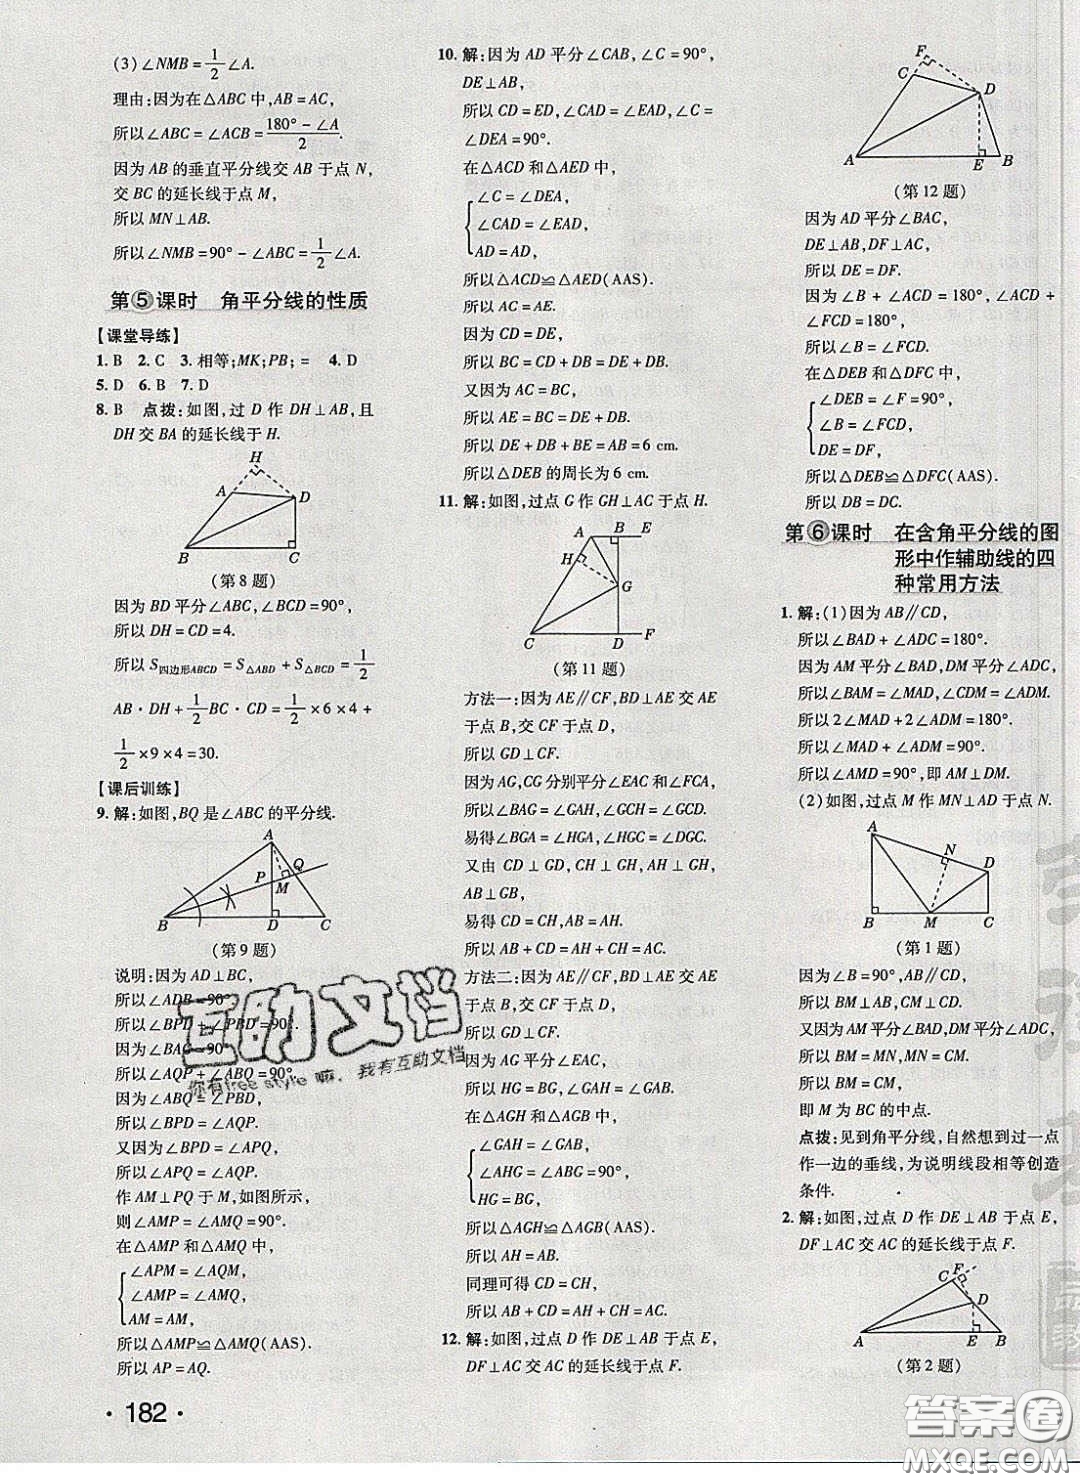 (3) ∠NMB = 1/2 ∠A.
理由:因为在△ABC 中,AB = AC,
所以∠ABC = ∠ACB = (180° - ∠A)/2.
因为 AB 的垂直平分线交 AB 于点 N,
交 BC 的延长线于点 M,
所以 MN⊥AB.
所以∠NMB = 90° - ∠ABC = 1/2 ∠A.
第⑤课时 角平分线的性质
【课堂导练】
1. B 2. C 3. 相等;MK;PB; = 4. D
5. D 6. B 7. D
8. B 点拨:如图,过 D 作 DH⊥AB,且
DH 交 BA 的延长线于 H.
H
A
D
B
C
(第 8 题)
因为 BD 平分∠ABC,∠BCD = 90°,
所以 DH = CD = 4.
所以 S四边形ABCD = S△ABD + S△BCD = 1/2
AB · DH + 1/2 BC · CD = 1/2 × 6 × 4 +
1/2 × 9 × 4 = 30.
【课后训练】
9. 解:如图,BQ 是∠ABC 的平分线.
A
P
Q
M
B
D
C
(第 9 题)
说明:因为 AD⊥BC,
所以∠ADB = 90°.
所以∠BPD + ∠PBD = 90°.
因为∠BAC = 90°,
所以∠AQP + ∠ABQ = 90°.
因为∠ABQ = ∠PBD,
所以∠BPD = ∠AQP.
又因为∠BPD = ∠APQ,
所以∠APQ = ∠AQP.
作 AM⊥PQ 于 M,如图所示,
则∠AMP = ∠AMQ = 90°.
在△AMP 和△AMQ 中,
∠APM = ∠AQM,
∠AMP = ∠AMQ,
AM = AM,
所以△AMP≌△AMQ(AAS).
所以 AP = AQ.
· 182 ·
10. 解:因为 AD 平分∠CAB,∠C = 90°,
DE⊥AB,
所以 CD = ED,∠CAD = ∠EAD,∠C =
∠DEA = 90°.
在△ACD 和△AED 中,
∠C = ∠DEA,
∠CAD = ∠EAD,
AD = AD,
所以△ACD≌△AED(AAS).
所以 AC = AE.
因为 CD = DE,
所以 BC = CD + DB = DE + DB.
又因为 AC = BC,
所以 AE = BC = DE + DB.
所以 DE + DB + BE = AB = 6 cm.
所以△DEB 的周长为 6 cm.
11. 解:如图,过点 G 作 GH⊥AC 于点 H.
A
B
E
H
G
C
D
F
(第 11 题)
方法一:因为 AE∥CF,BD⊥AE 交 AE
于点 B,交 CF 于点 D,
所以 GD⊥CF.
因为 AG,CG 分别平分∠EAC 和∠FCA,
所以∠BAG = ∠GAH,∠GCH = ∠GCD.
易得∠BGA = ∠HGA,∠HGC = ∠DGC.
又由 CD⊥GD,CH⊥GH,AH⊥GH,
AB⊥GB,
易得 CD = CH,AH = AB.
所以 AB + CD = AH + CH = AC.
方法二:因为 AE∥CF,BD⊥AE 交 AE
于点 B,交 CF 于点 D,
所以 GD⊥CF.
因为 AG 平分∠EAC,
所以 HG = BG,∠GAH = ∠GAB.
在△AGH 和△AGB 中,
∠GAH = ∠GAB,
∠AHG = ∠ABG = 90°,
HG = BG,
所以△AGH≌△AGB(AAS).
所以 AH = AB.
同理可得 CD = CH.
所以 AB + CD = AH + CH = AC.
12. 解:如图,过点 D 作 DE⊥AB 于点 E,
DF⊥AC 交 AC 的延长线于点 F.
F
C
D
A
E
B
(第 12 题)
因为 AD 平分∠BAC,
DE⊥AB,DF⊥AC,
所以 DE = DF.
因为∠B + ∠ACD = 180°,∠ACD +
∠FCD = 180°,
所以∠B = ∠FCD.
在△DEB 和△DFC 中,
∠DEB = ∠F = 90°,
∠B = ∠FCD,
DE = DF,
所以△DEB≌△DFC(AAS).
所以 DB = DC.
第⑥课时 在含角平分线的图
形中作辅助线的四
种常用方法
1. 解:(1)因为 AB∥CD,
所以∠BAD + ∠ADC = 180°.
因为 AM 平分∠BAD,DM 平分∠ADC,
所以∠BAM = ∠MAD,∠ADM = ∠MDC.
所以 2∠MAD + 2∠ADM = 180°.
所以∠MAD + ∠ADM = 90°.
所以∠AMD = 90°,即 AM⊥DM.
(2)如图,过点 M 作 MN⊥AD 于点 N.
A
N
D
B
M
C
(第 1 题)
因为∠B = 90°,AB∥CD,
所以 BM⊥AB,CM⊥CD.
又因为 AM 平分∠BAD,DM 平分∠ADC,
所以 BM = MN,MN = CM.
所以 BM = CM,
即 M 为 BC 的中点.
点拨:见到角平分线,自然想到过一点
作一边的垂线,为说明线段相等创造
条件.
2. 解:如图,过点 D 作 DE⊥AB 于点 E,
DF⊥AC 交 AC 的延长线于点 F.
C
F
D
A
E
B
(第 2 题)
互助文档
你有free style嘛, 我有互助文档
答案圈
MXQE.COM